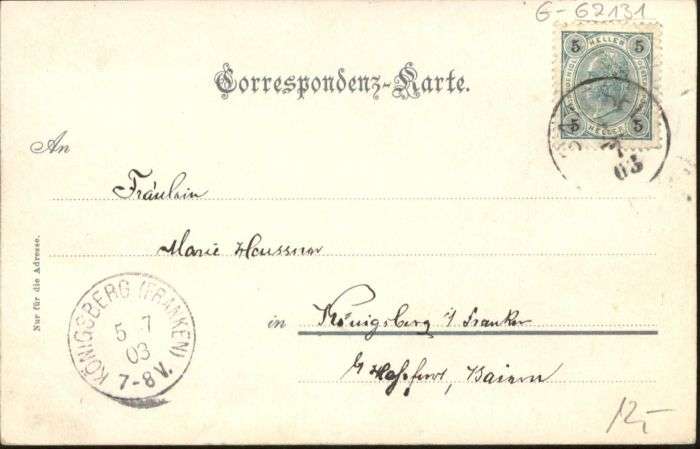 G-62131
5 HELLER 5
5 HELLER 5
03
Correspondenz-Karte.
An
Fräulein
Marie Haussner
in Königsberg i/ Franken
b/ Hassfurt, Baiern
Nur für die Adresse.
KÖNIGSBERG (FRANKEN)
5 7
03
7-8 V.
12,-